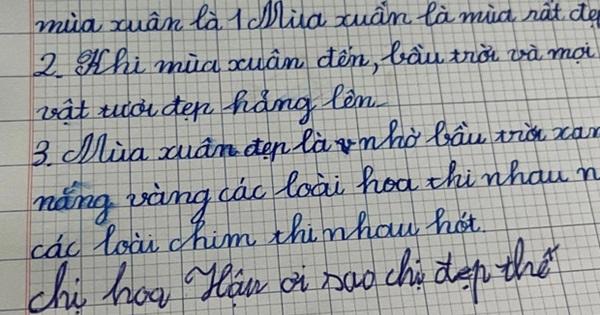 mùa xuân là 1 Mùa xuân là mùa rất đẹ
2. Khi mùa xuân đến, bầu trời và mọi
vật tươi đẹp hẳng lên
3. Mùa xuân đẹp là nhờ bầu trời xan
nắng vàng các loài hoa thi nhau n
các loài chim thi nhau hót.
chị hoa Hậu ơi sao chị đẹp thế